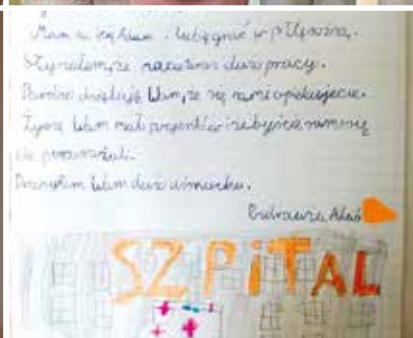 Mam na imię . Lubię grać w piłkę nożną.
Słyszałem, że macie teraz dużo pracy.
Bardzo dziękuję Wam, że się nami opiekujecie.
Życzę Wam mało pacjentów i żebyście sami się
nie pozarażali.
Przesyłam Wam dużo uśmiechu.
Pozdrawiam,
SZPITAL